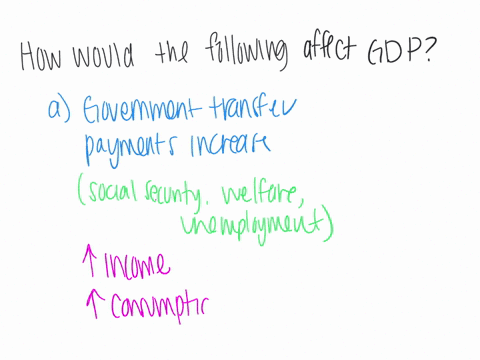 How would the following affect GDP?
a) Government transfer
payments increase
(social security, welfare,
unemployment)
↑ Income
↑ Consumptio